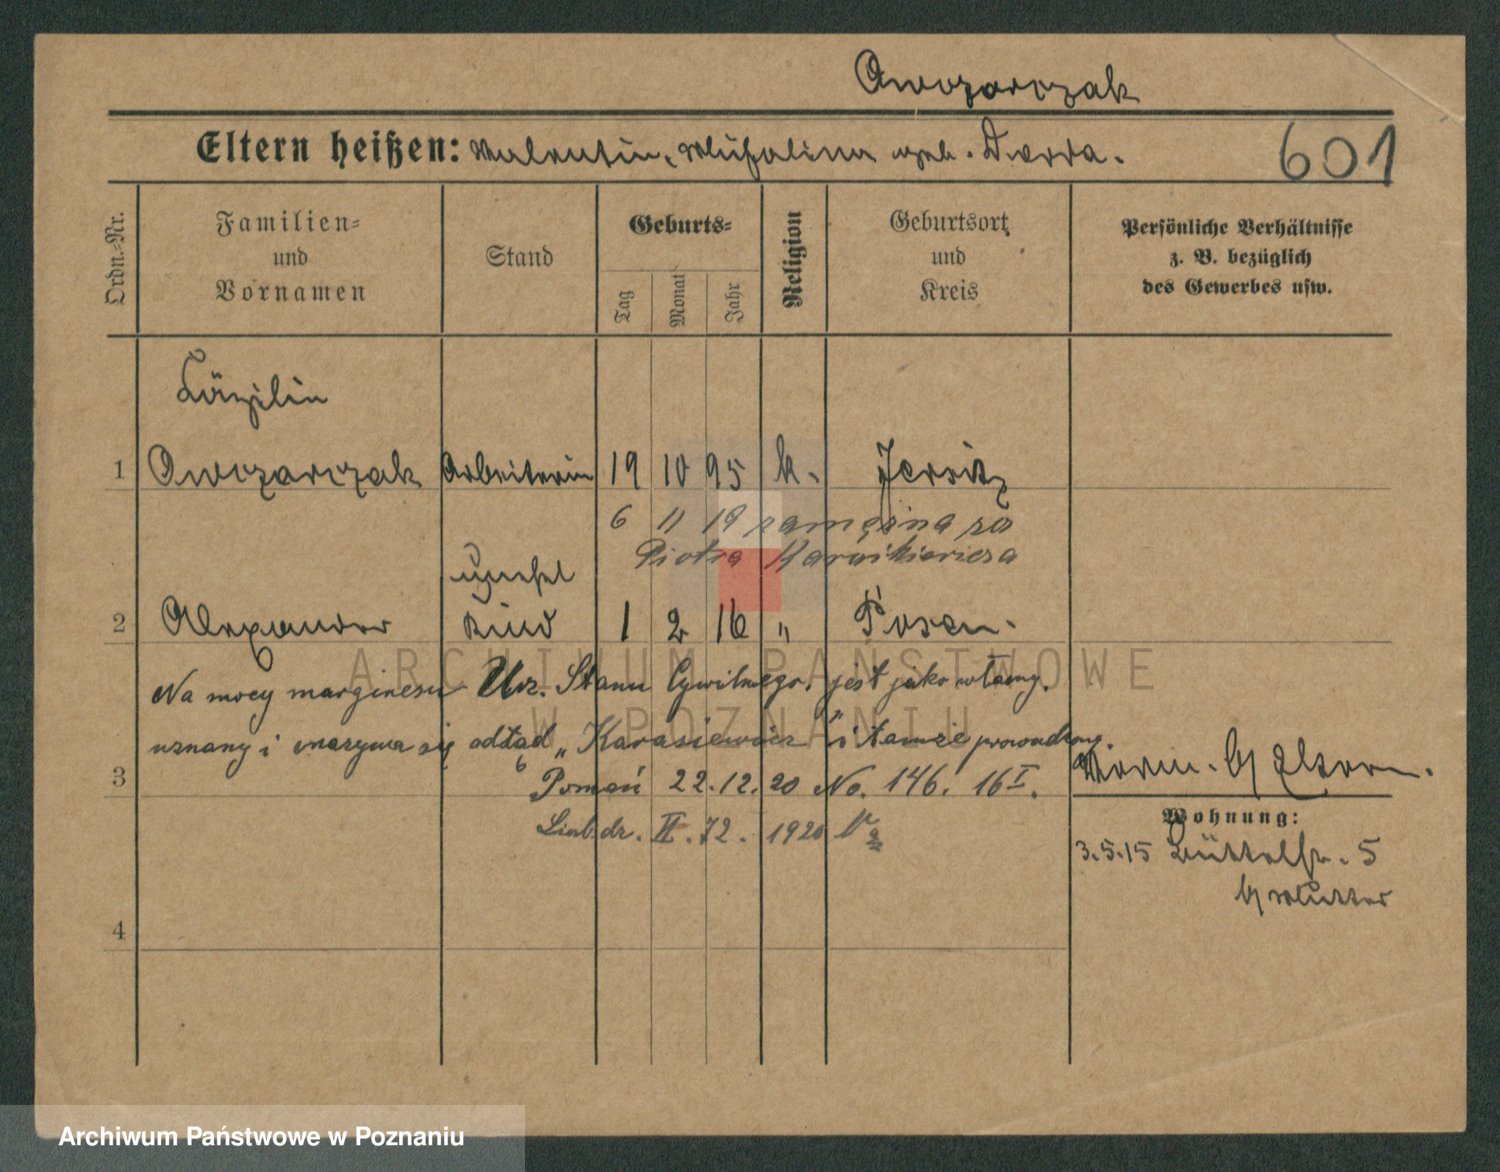 Owczarczak
Eltern heißen: Valentin, Michalina geb. Derda.
601
Ordn.-Nr.
Familien-
und
Vornamen
Stand
Geburts-
Tag
Monat
Jahr
Religion
Geburtsort
und
Kreis
Persönliche Verhältnisse
z. B. bezüglich
des Gewerbes usw.
Cäzilie
1 Owczarczak Arbeiterin 19 10 95 k. Jersitz
6 11 19 zamężna za
Piotra
unehel
2 Alexander Kind 1 2 16 " Posen.
Na mocy marginesu Urz. Stanu Cywilnego, jest jako własny
uznany i nazywa się odtąd „Karasiewicz" i tamże prowadzony.
3
Poznań 22.12.20 No. 146. 16 I.
II. 72. 1920
b/ Eltern.
Wohnung:
3.5.15 Büttelstr. 5
b/ Mutter
4
ARCHIWUM PAŃSTWOWE
W POZNANIU
Archiwum Państwowe w Poznaniu